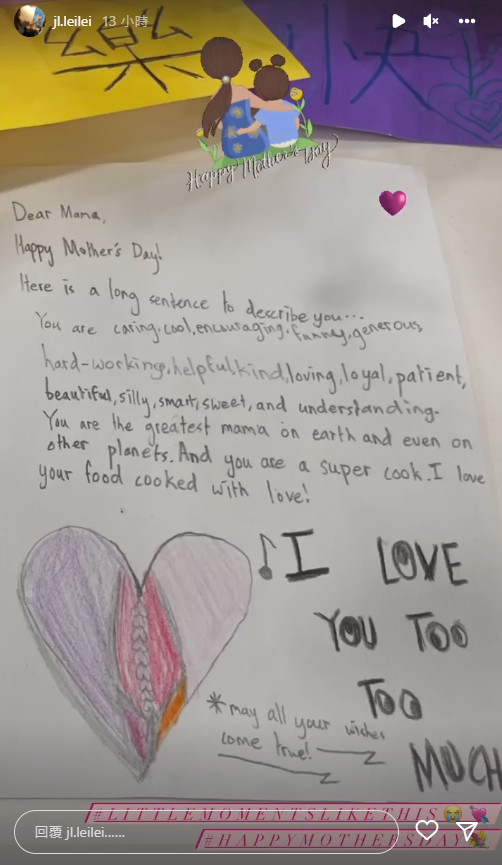 jl.leilei 13 小時
樂 快
Happy Mother's Day
Dear Mama,
Happy Mother's Day!
Here is a long sentence to describe you...
You are caring, cool, encouraging, funny, generous,
hard-working, helpful, kind, loving, loyal, patient,
beautiful, silly, smart, sweet, and understanding.
You are the greatest mama on earth and even on
other planets. And you are a super cook. I love
your food cooked with love!
♪ I LOVE
YOU TOO
TOO
MUCH
*may all your wishes
come true!
#LITTLEMOMENTSLIKETHIS 😭 💘
#HAPPYMOTHERSDAY
回覆 jl.leilei......